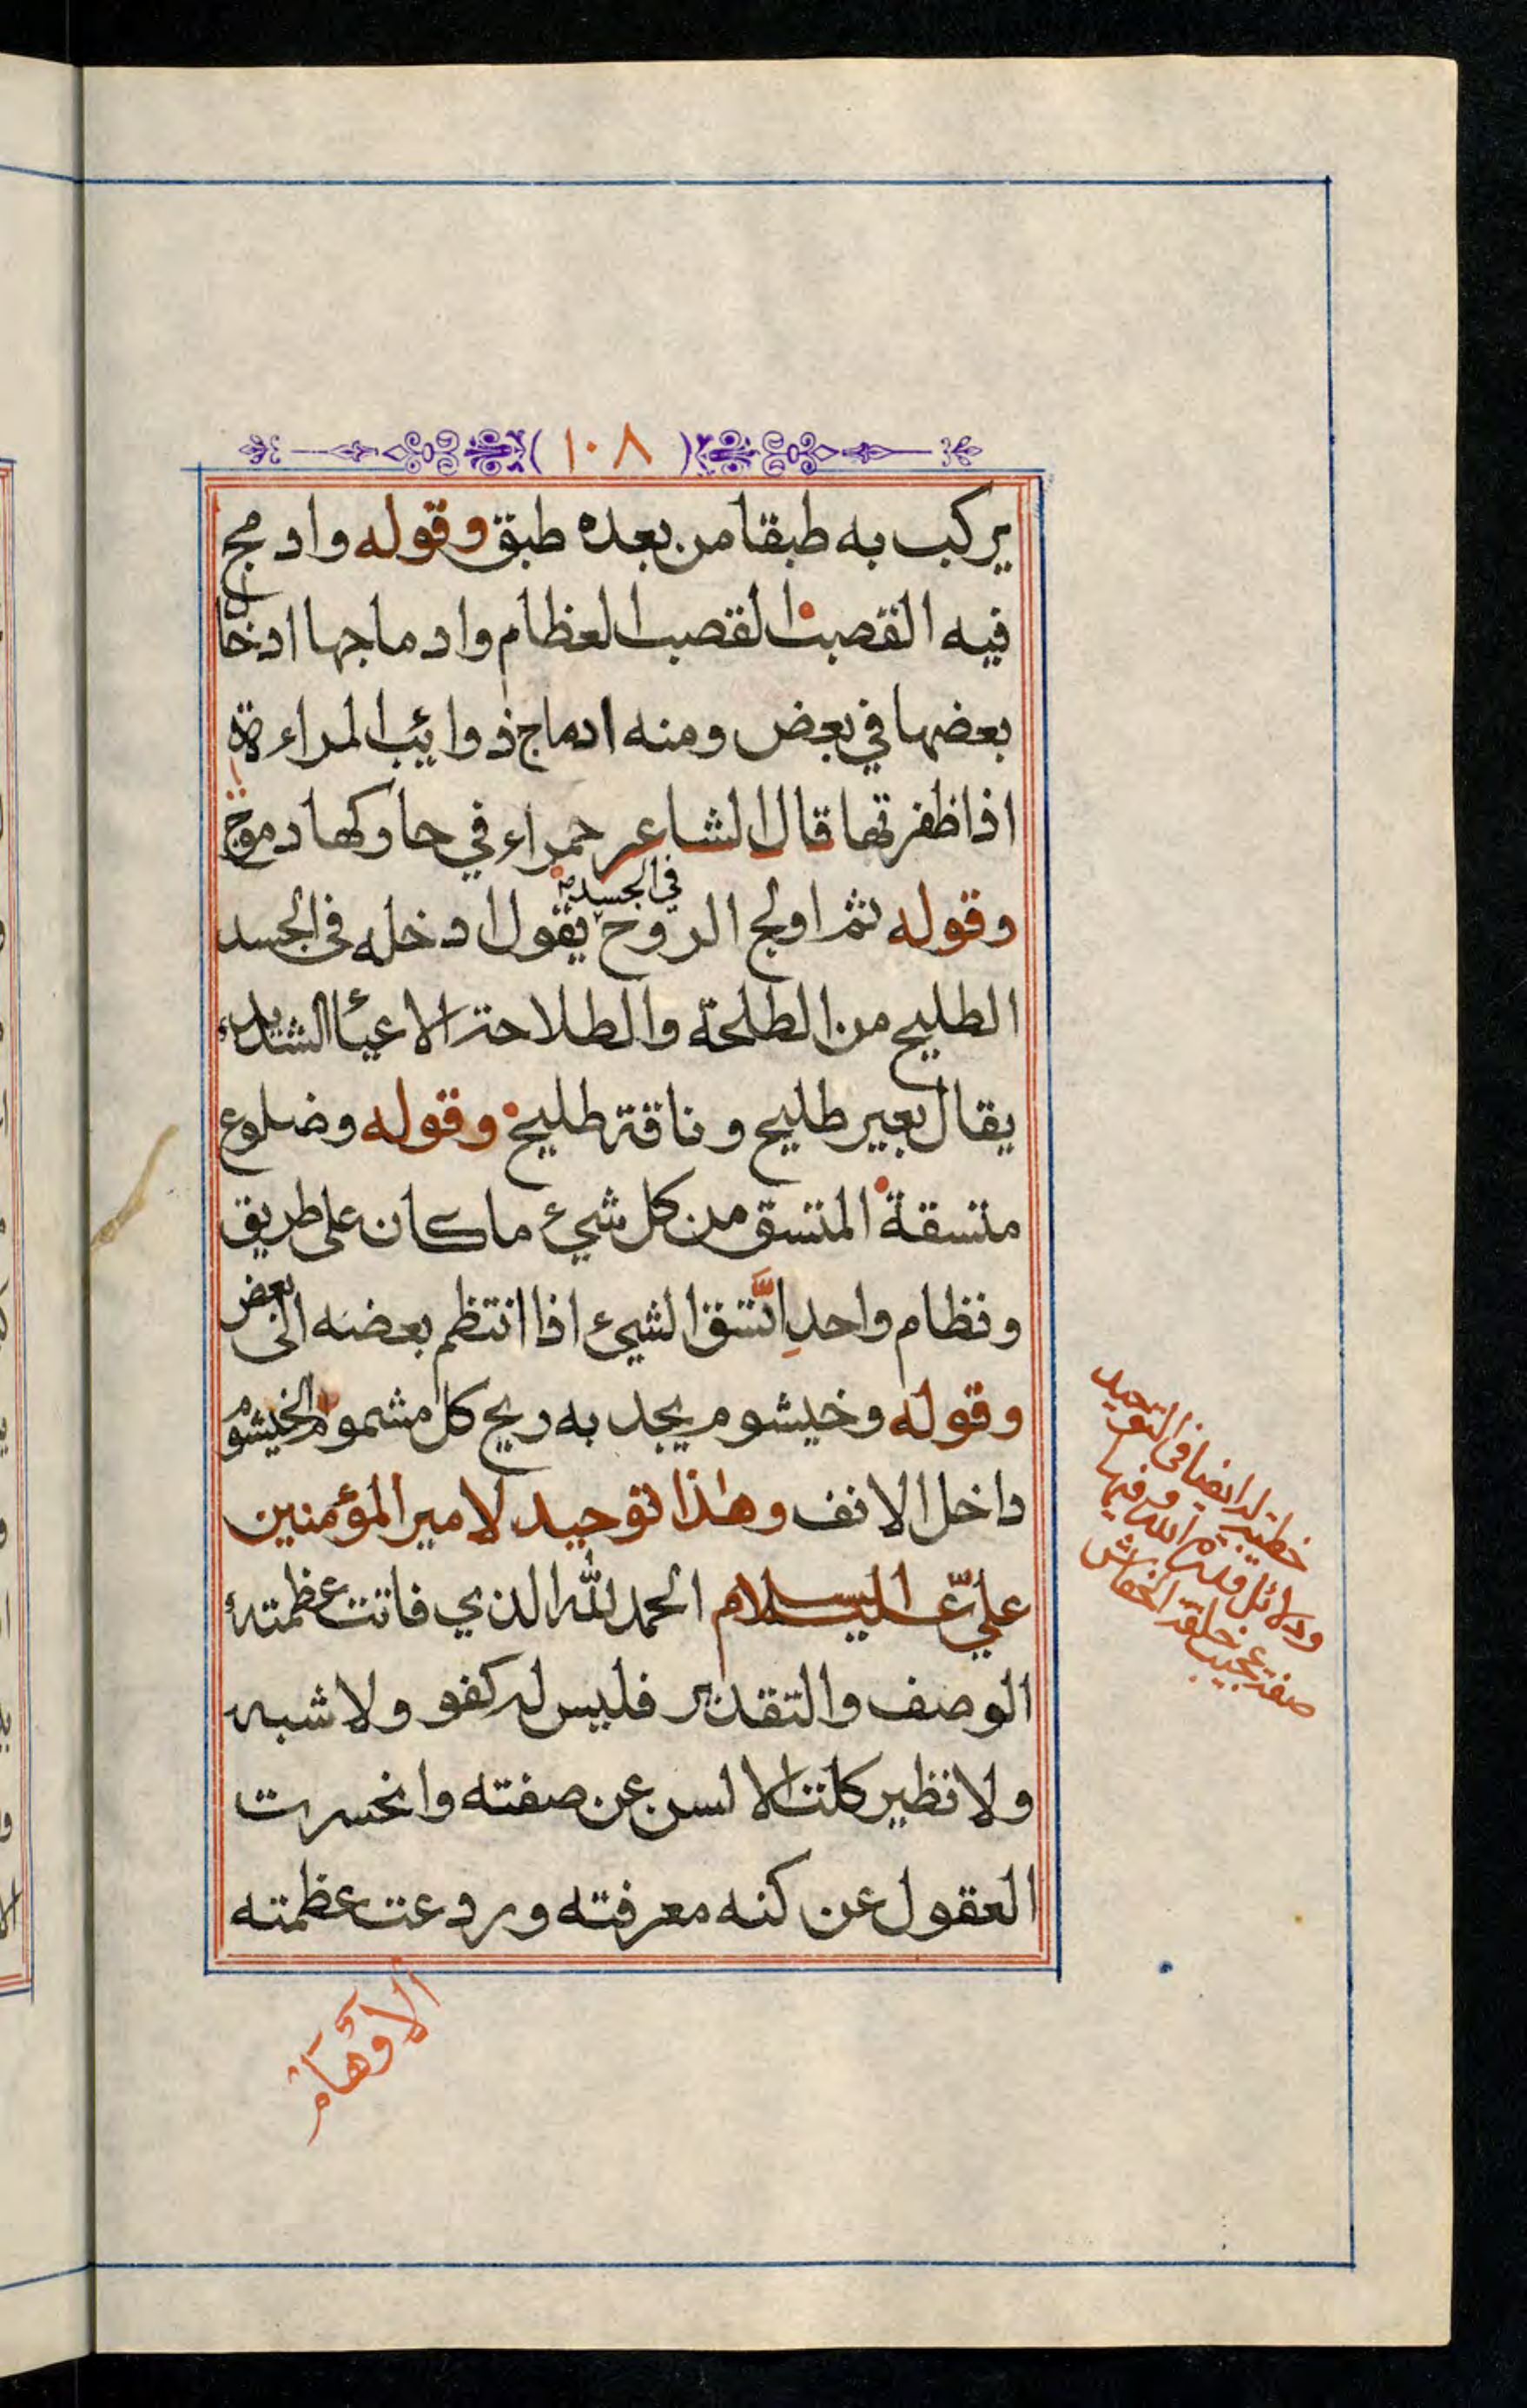 (١٠٨)
يركب به طبقا من بعده طبق وقوله وادمج
فيه القصب القصب العظام وادماجها ادخال
بعضها في بعض ومنه ادماج ذوائب المراءة
اذا ظفرتها قال الشاعر حمراء في حاركها دموج
وقوله ثم اولج الروح في الجسد يقول ادخله في الجسد
الطليح من الطلحة والطلاحة الاعيأ الشديد
يقال بعير طليح وناقة طليح وقوله وضلوع
متسقة المتسق من كل شيئ ما كان على طريق
ونظام واحد اتّسق الشيئ اذا انتظم بعضه الى بعض
وقوله وخيشوم يجد به ريح كل مشموم الخيشوم
داخل الانف وهذا توحيد لامير المؤمنين
عليّ عليه السلام الحمد لله الذي فاتت عظمته
الوصف والتقدير فليس له كفو ولا شبه
ولا نظير كلت الالسن عن صفته وانحسرت
العقول عن كنه معرفته وردعت عظمته
الاوهام
خطبة له ايضا في التوحيد
ودلائل قدم الله وفيها
صفة عجيب خلقة الخفاش